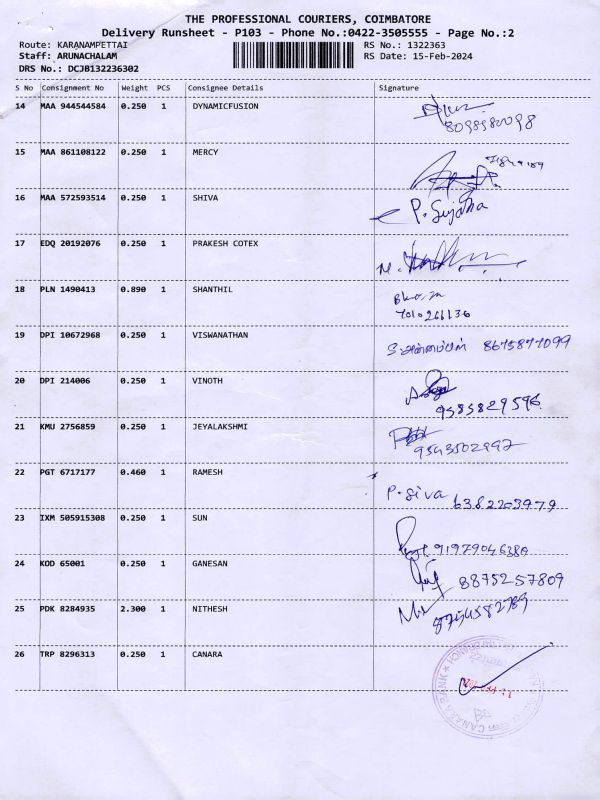 THE PROFESSIONAL COURIERS, COIMBATORE
Delivery Runsheet - P103 - Phone No.:0422-3505555 - Page No.:2
Route: KARANAMPETTAI RS No.: 1322363
Staff: ARUNACHALAM RS Date: 15-Feb-2024
DRS No.: DCJB132236302
S No Consignment No Weight PCS Consignee Details Signature
14 MAA 944544584 0.250 1 DYNAMICFUSION
15 MAA 861108122 0.250 1 MERCY
16 MAA 572593514 0.250 1 SHIVA P. Sujatha
17 EDQ 20192076 0.250 1 PRAKESH COTEX
18 PLN 1490413 0.890 1 SHANTHIL
7010261136
19 DPI 10672968 0.250 1 VISWANATHAN 8675877099
20 DPI 214006 0.250 1 VINOTH
9585829596
21 KMU 2756859 0.250 1 JEYALAKSHMI
9543502992
22 PGT 6717177 0.460 1 RAMESH P. Siva 6382203979
23 IXM 505915308 0.250 1 SUN 91979046380
24 KOD 65001 0.250 1 GANESAN 8875257809
25 PDK 8284935 2.300 1 NITHESH
26 TRP 8296313 0.250 1 CANARA
CANARA BANK